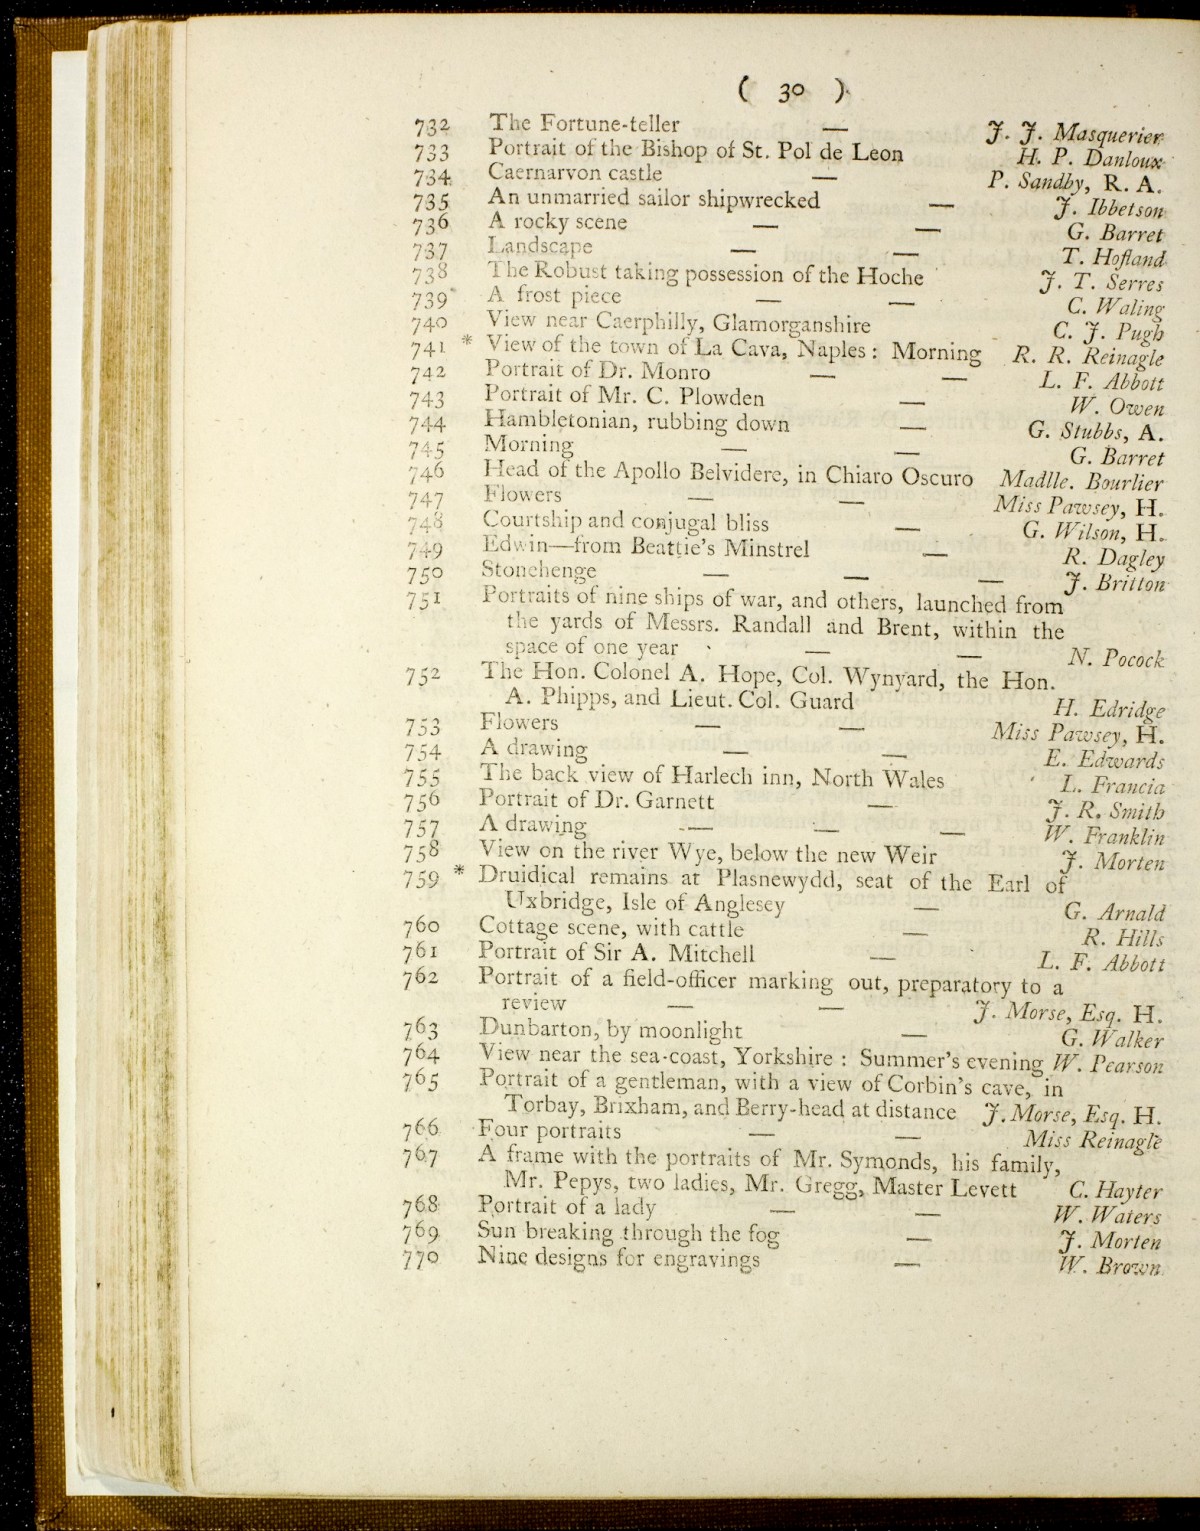 ( 30 )
732 The Fortune-teller — J. J. Masquerier
733 Portrait of the Bishop of St. Pol de Leon H. P. Danloux
734 Caernarvon castle — P. Sandby, R. A.
735 An unmarried sailor shipwrecked — J. Ibbetson
736 A rocky scene — — G. Barret
737 Landscape — — T. Hofland
738 The Robust taking possession of the Hoche J. T. Serres
739 A frost piece — — C. Waling
740 View near Caerphilly, Glamorganshire C. J. Pugh
741 * View of the town of La Cava, Naples : Morning R. R. Reinagle
742 Portrait of Dr. Monro — — L. F. Abbott
743 Portrait of Mr. C. Plowden — W. Owen
744 Hambletonian, rubbing down — G. Stubbs, A.
745 Morning — — G. Barret
746 Head of the Apollo Belvidere, in Chiaro Oscuro Madlle. Bourlier
747 Flowers — — Miss Pawsey, H.
748 Courtship and conjugal bliss — G. Wilson, H.
749 Edwin—from Beattie's Minstrel — R. Dagley
750 Stonehenge — — — J. Britton
751 Portraits of nine ships of war, and others, launched from
the yards of Messrs. Randall and Brent, within the
space of one year — — N. Pocock
752 The Hon. Colonel A. Hope, Col. Wynyard, the Hon.
A. Phipps, and Lieut. Col. Guard H. Edridge
753 Flowers — — Miss Pawsey, H.
754 A drawing — — E. Edwards
755 The back view of Harlech inn, North Wales L. Francia
756 Portrait of Dr. Garnett — J. R. Smith
757 A drawing — — — W. Franklin
758 View on the river Wye, below the new Weir J. Morten
759 * Druidical remains at Plasnewydd, seat of the Earl of
Uxbridge, Isle of Anglesey — G. Arnald
760 Cottage scene, with cattle — R. Hills
761 Portrait of Sir A. Mitchell — L. F. Abbott
762 Portrait of a field-officer marking out, preparatory to a
review — — J. Morse, Esq. H.
763 Dunbarton, by moonlight — G. Walker
764 View near the sea-coast, Yorkshire : Summer's evening W. Pearson
765 Portrait of a gentleman, with a view of Corbin's cave, in
Torbay, Brixham, and Berry-head at distance J. Morse, Esq. H.
766 Four portraits — — Miss Reinagle
767 A frame with the portraits of Mr. Symonds, his family,
Mr. Pepys, two ladies, Mr. Gregg, Master Levett C. Hayter
768 Portrait of a lady — — W. Waters
769 Sun breaking through the fog — J. Morten
770 Nine designs for engravings — W. Brown